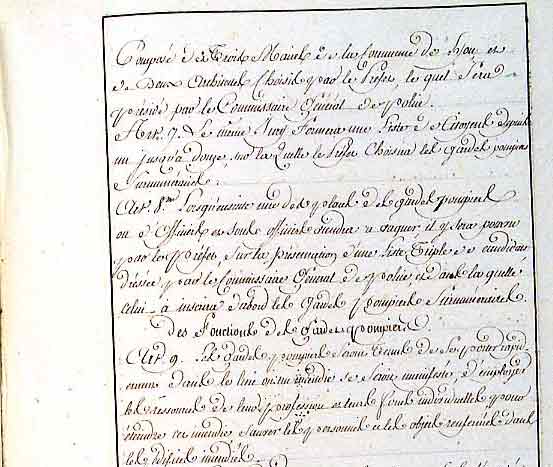 Composé des trois Maires de la Commune de Lyon et
de Deux Architectes Choisis par le Préfet, le quel sera
présidé par le Commissaire Général de police.
Art. 7. Le même Jury formera une liste de Citoyens depuis
un jusqu'à douze, sur la quelle le Préfet Choisira les Gardes pompiers
Surnuméraires.
Art. 8.me Lorsqu'ensuite une des places des gardes pompiers
ou d'Officiers et sous officiers viendra à vaquer, il y sera pourvu
par le Préfet, sur la présentation d'une liste Triple de candidats
dressée par le Commissaire Général de police et dans la quelle
celui-à inscrira d'abord les Gardes pompiers Surnuméraires.
Des fonctions des Gardes pompiers.
Art. 9. Les Gardes pompiers seront tenus de se porter rapid-
ement dans le lieu où un incendie se seroit manifesté, d'employer
les ressources de leur profession et leurs forces individuelles pour
éteindre cet incendie sauver les personnes et les objets renfermés dans
les édifices incendiés.